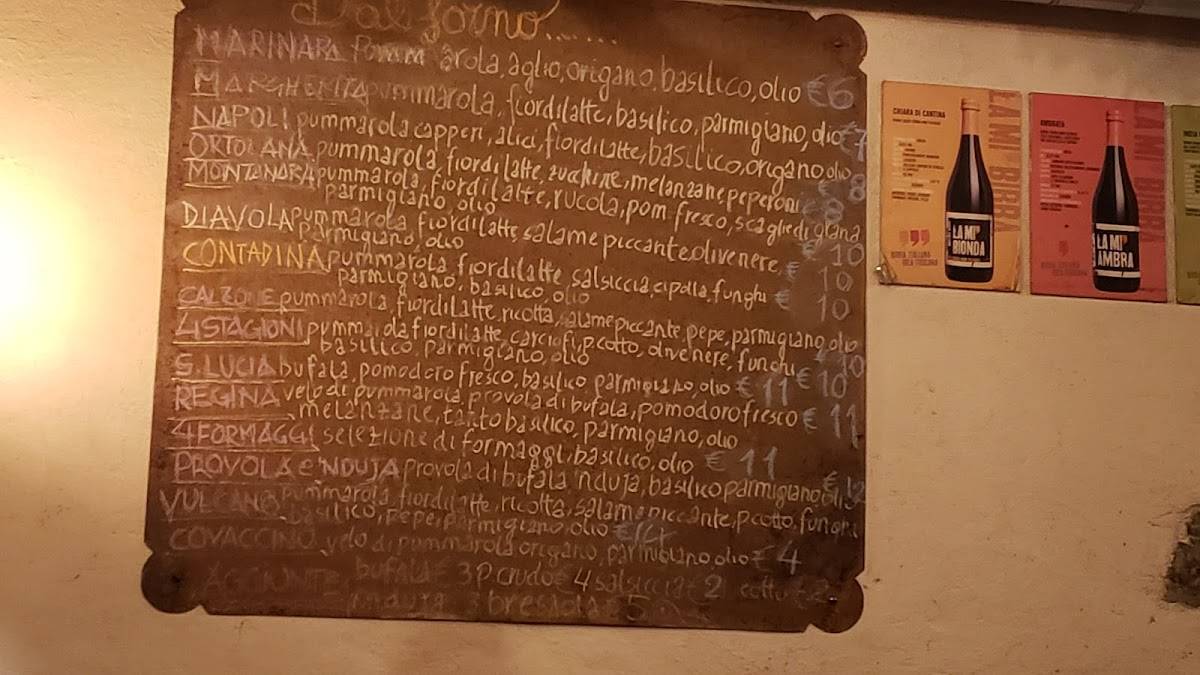 Dal forno......
MARINARA Pomm arola, aglio, origano, basilico, olio €6
MARGHERITA pummarola, fiordilatte, basilico, parmigiano, olio €7
NAPOLI pummarola capperi, alici, fiordilatte, basilico, origano olio € 8
ORTOLANA pummarola, fiordilatte, zucchine, melanzane, peperoni €8
MONTANARA pummarola, fiordilatte, rucola, pom. fresco, scaglie di grana
parmigiano, olio € 10
DIAVOLA pummarola, fiordilatte, salame piccante, olive nere,
parmigiano, olio € 10
CONTADINA pummarola, fiordilatte salsiccia, cipolla, funghi € 10
parmigiano, basilico, olio
CALZONE pummarola, fiordilatte, ricotta, salame piccante, pepe, parmigiano, olio €10
4 STAGIONI pummarola fiordilatte, carciofi, p.cotto, olive nere, funghi € 10
basilico, parmigiano, olio
S. LUCIA bufala, pomodoro fresco, basilico parmigiano, olio € 11
REGINA velo di pummarola, provola di bufala, pomodoro fresco € 11
melanzane, tanto basilico, parmigiano, olio
4 FORMAGGI selezione di formaggi, basilico, olio € 11
PROVOLA e 'NDUJA provola di bufala 'nduja, basilico parmigiano, olio €12
VULCANO pummarola, fiordilatte, ricotta, salame piccante, p.cotto, funghi
basilico, pepe, parmigiano, olio €14
COVACCINO velo di pummarola origano, parmigiano olio € 4
AGGIUNTE bufala € 3 P. crudo € 4 salsiccia € 2 cotto € 2
nduja 3 bresaola € 5
CHIARA DI CANTINA
LA MI' BIRRA
LA MI'
BIONDA
BIRRA ITALIANA
AMBRATA
LA MI' BIRRA
LA MI'
AMBRA